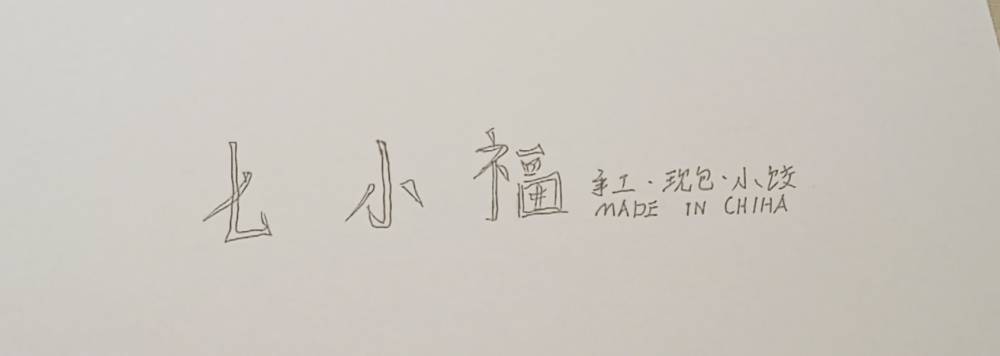 七小福
手工·现包·小饺
MADE IN CHIHA